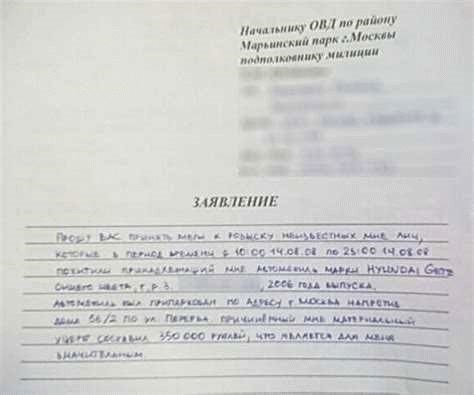 Начальнику ОВД по району
Марьинский парк г.Москвы
подполковнику милиции
ЗАЯВЛЕНИЕ
Прошу Вас принять меры к розыску неизвестных мне лиц,
которые в период времени с 10:00 14.08.08 по 23:00 14.08.08
похитили принадлежащий мне автомобиль марки HYUNDAI Getz
синего цвета, г.р.з. , 2006 года выпуска.
Автомобиль был припаркован по адресу г Москва напротив
дома 56/2 по ул. Перерва. Причинённый мне материальный
ущерб составил 350 000 рублей, что является для меня
значительным.